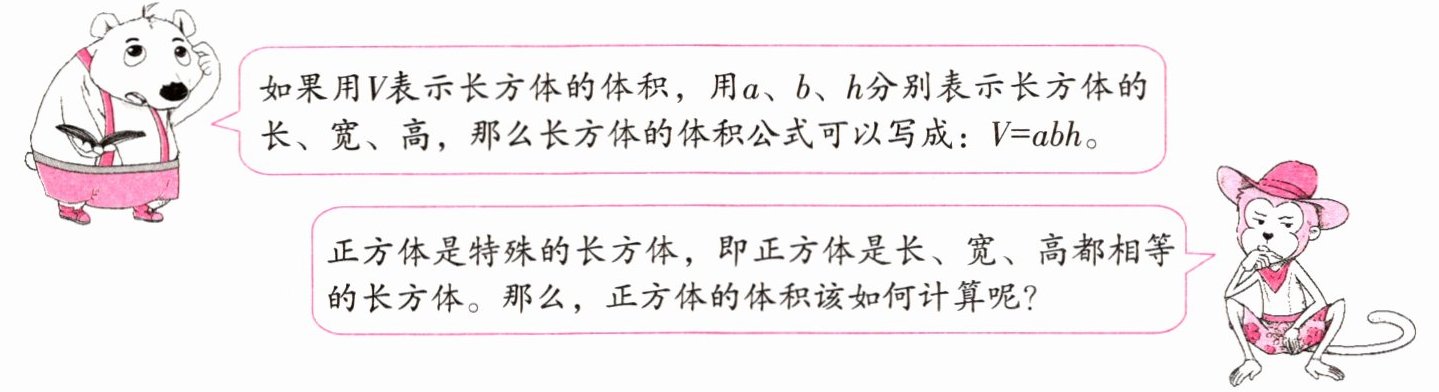 如果用V表示长方体的体积，用a、b、h分别表示长方体的
长、宽、高，那么长方体的体积公式可以写成：V=abh。
正方体是特殊的长方体，即正方体是长、宽、高都相等
的长方体。那么，正方体的体积该如何计算呢？